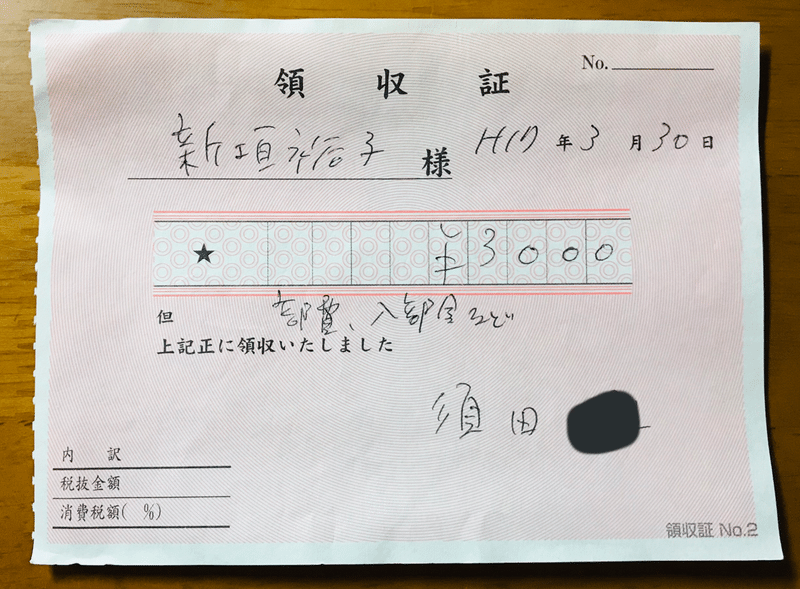 領収証
No.
新項裕子 様 H17年3月30日
★ ¥3000
但 部費、入部金など
上記正に領収いたしました
須田
内訳
税抜金額
消費税額( %)
領収証 No.2